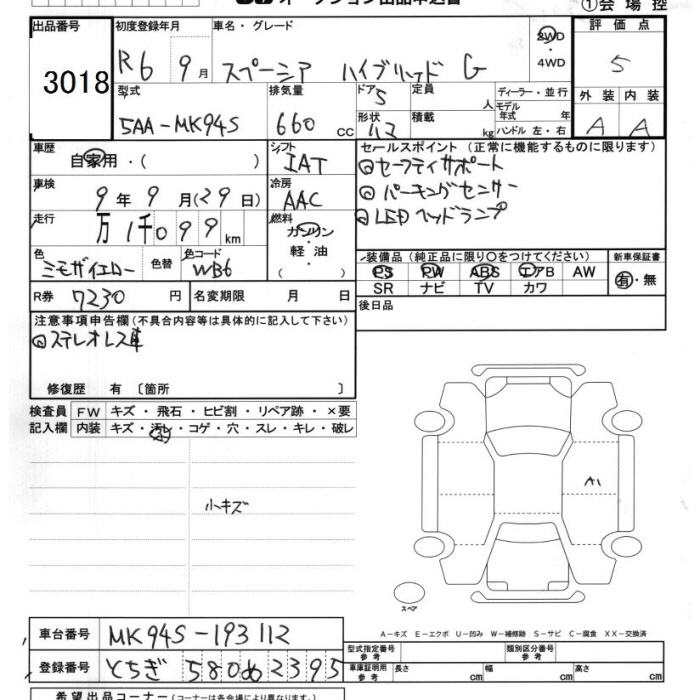 ①会場控
出品番号 初度登録年月 車名・グレード 評価点
3018 R6 9月 スペーシア ハイブリッド G 2WD・4WD 5
型式 排気量 ドア 定員 ディーラー・並行 外装 内装
5AA-MK94S 660CC 5 人 モデル年式 年 A A
形状 積載 kg ハンドル 左・右
車歴 シフト セールスポイント(正常に機能するものに限ります)
自家用・( ) IAT ◎セーフティサポート
車検 冷房 ◎パーキングセンサー
9年9月(29日) AAC ◎LEDヘッドランプ
走行 燃料
万1千099km ガソリン・軽油・( )
色 色替 色コード 装備品(純正品に限り○をつけてください) 新車保証書
ミモザイエロー WB6 PS PW ABS エアB AW 有・無
SR ナビ TV カワ
R券 7230円 名変期限 月 日 後日品
注意事項申告欄(不具合内容等は具体的に記入して下さい)
◎ステレオレス車
修復歴 有〔箇所 〕
検査員 FW キズ・飛石・ヒビ割・リペア跡・×要
記入欄 内装 キズ・汚レ・コゲ・穴・スレ・キレ・破レ
小キズ
A1
スペア
A-キズ E-エクボ U-凹み W-補修跡 S-サビ C-腐食 XX-交換済
車台番号 MK94S-193112
型式指定番号 類別区分番号
登録番号 とちぎ 580 め 2395
車庫証明用参考 長さ cm 幅 cm 高さ cm
希望出品コーナー(コーナーは各会場により異なります。)